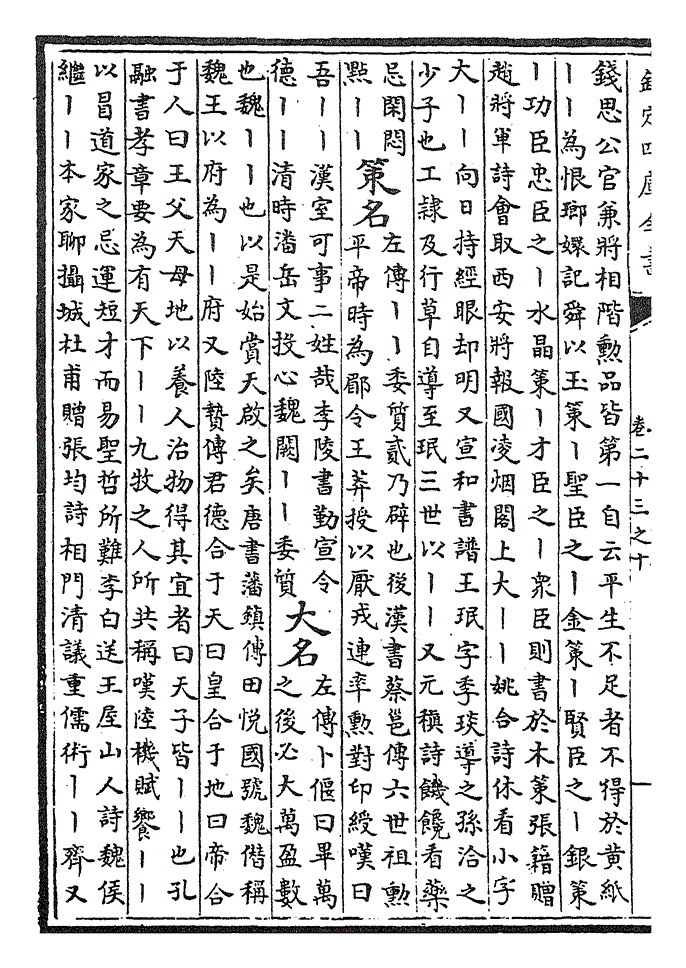 欽定四庫全書
卷二十三之十
一
錢思公官兼將相階勲品皆第一自云平生不足者不得於黄紙
丨丨為恨瑯嬛記舜以玉策丨聖臣之丨金策丨賢臣之丨銀策
丨功臣忠臣之丨水晶策丨才臣之丨衆臣則書於木策張籍贈
趙將軍詩會取西安將報國凌烟閣上大丨丨姚合詩休看小字
大丨丨向日持經眼却明又宣和書譜王珉字季琰導之孫洽之
少子也工隸及行草自導至珉三世以丨丨又元稹詩饑饞看藥
忌閑悶
點丨丨
策名
左傳丨丨委質貳乃辟也後漢書蔡邕傳六世祖勲
平帝時為郿令王莽授以厭戎連率勲對印綬嘆曰
吾丨丨漢室可事二姓哉李陵書勤宣令
德丨丨清時潘岳文投心魏闕丨丨委質
大名
左傳卜偃曰畢萬
之後必大萬盈數
也魏丨丨也以是始賞天啟之矣唐書藩鎮傳田悅國號魏僭稱
魏王以府為丨丨府又陸贄傳君德合于天曰皇合于地曰帝合
于人曰王父天母地以養人治物得其宜者曰天子皆丨丨也孔
融書孝章要為有天下丨丨九牧之人所共稱嘆陸機賦饗丨丨
以冒道家之忌運短才而易聖哲所難李白送王屋山人詩魏侯
繼丨丨本家聊攝城杜甫贈張均詩相門清議重儒術丨丨齊又